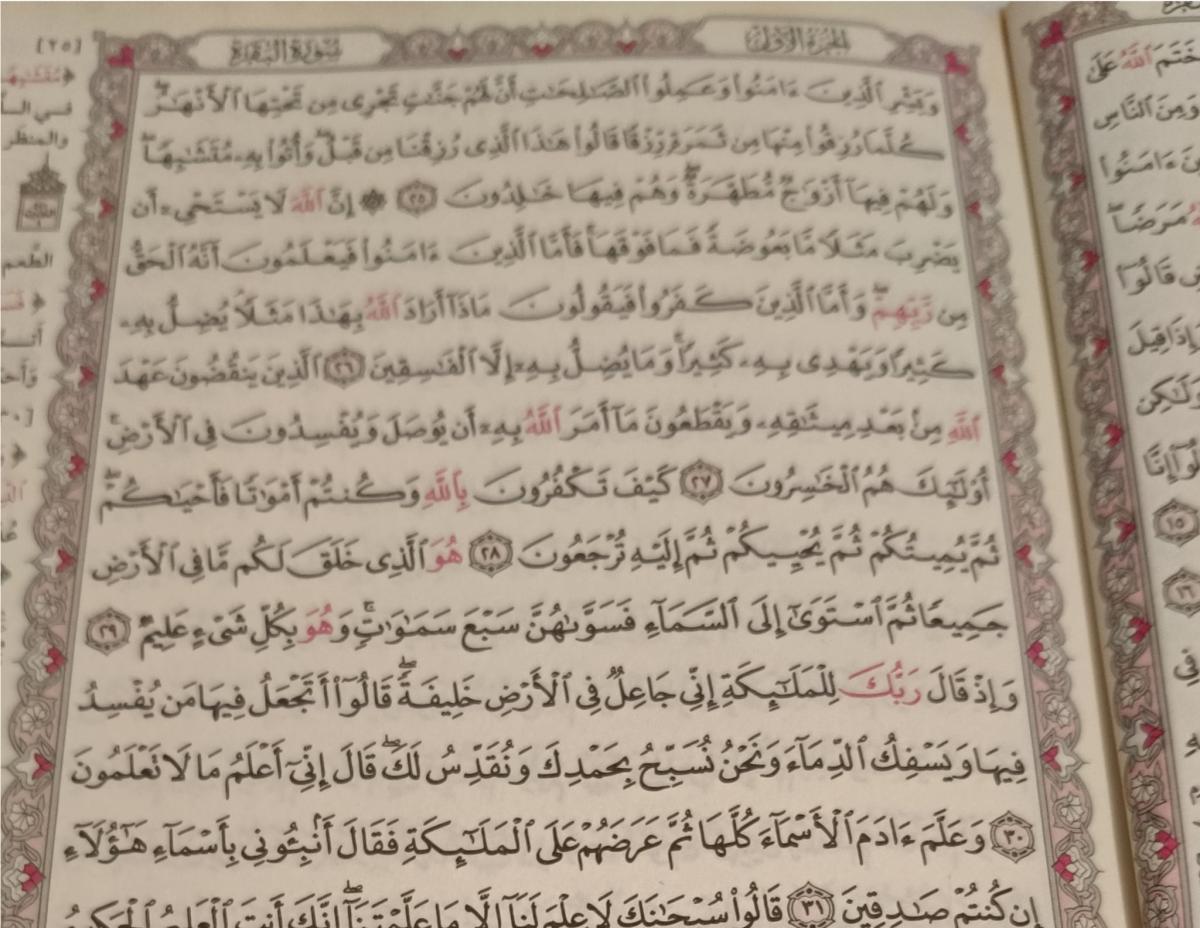 الجزء الأول
سورة البقرة
وَبَشِّرِ ٱلَّذِينَ ءَامَنُوا۟ وَعَمِلُوا۟ ٱلصَّـٰلِحَـٰتِ أَنَّ لَهُمْ جَنَّـٰتٍ تَجْرِى مِن تَحْتِهَا ٱلْأَنْهَـٰرُ ۖ
كُلَّمَا رُزِقُوا۟ مِنْهَا مِن ثَمَرَةٍ رِّزْقًا قَالُوا۟ هَـٰذَا ٱلَّذِى رُزِقْنَا مِن قَبْلُ ۖ وَأُتُوا۟ بِهِۦ مُتَشَـٰبِهًا ۖ
وَلَهُمْ فِيهَآ أَزْوَٰجٌ مُّطَهَّرَةٌ ۖ وَهُمْ فِيهَا خَـٰلِدُونَ ﴿٢٥﴾ ۞ إِنَّ ٱللَّهَ لَا يَسْتَحْىِۦٓ أَن
يَضْرِبَ مَثَلًا مَّا بَعُوضَةً فَمَا فَوْقَهَا ۚ فَأَمَّا ٱلَّذِينَ ءَامَنُوا۟ فَيَعْلَمُونَ أَنَّهُ ٱلْحَقُّ
مِن رَّبِّهِمْ ۖ وَأَمَّا ٱلَّذِينَ كَفَرُوا۟ فَيَقُولُونَ مَاذَآ أَرَادَ ٱللَّهُ بِهَـٰذَا مَثَلًا ۘ يُضِلُّ بِهِۦ
كَثِيرًا وَيَهْدِى بِهِۦ كَثِيرًا ۚ وَمَا يُضِلُّ بِهِۦٓ إِلَّا ٱلْفَـٰسِقِينَ ﴿٢٦﴾ ٱلَّذِينَ يَنقُضُونَ عَهْدَ
ٱللَّهِ مِنۢ بَعْدِ مِيثَـٰقِهِۦ وَيَقْطَعُونَ مَآ أَمَرَ ٱللَّهُ بِهِۦٓ أَن يُوصَلَ وَيُفْسِدُونَ فِى ٱلْأَرْضِ ۚ
أُو۟لَـٰٓئِكَ هُمُ ٱلْخَـٰسِرُونَ ﴿٢٧﴾ كَيْفَ تَكْفُرُونَ بِٱللَّهِ وَكُنتُمْ أَمْوَٰتًا فَأَحْيَـٰكُمْ ۖ
ثُمَّ يُمِيتُكُمْ ثُمَّ يُحْيِيكُمْ ثُمَّ إِلَيْهِ تُرْجَعُونَ ﴿٢٨﴾ هُوَ ٱلَّذِى خَلَقَ لَكُم مَّا فِى ٱلْأَرْضِ
جَمِيعًا ثُمَّ ٱسْتَوَىٰٓ إِلَى ٱلسَّمَآءِ فَسَوَّىٰهُنَّ سَبْعَ سَمَـٰوَٰتٍ ۚ وَهُوَ بِكُلِّ شَىْءٍ عَلِيمٌ ﴿٢٩﴾
وَإِذْ قَالَ رَبُّكَ لِلْمَلَـٰٓئِكَةِ إِنِّى جَاعِلٌ فِى ٱلْأَرْضِ خَلِيفَةً ۖ قَالُوٓا۟ أَتَجْعَلُ فِيهَا مَن يُفْسِدُ
فِيهَا وَيَسْفِكُ ٱلدِّمَآءَ وَنَحْنُ نُسَبِّحُ بِحَمْدِكَ وَنُقَدِّسُ لَكَ ۖ قَالَ إِنِّىٓ أَعْلَمُ مَا لَا تَعْلَمُونَ
﴿٣٠﴾ وَعَلَّمَ ءَادَمَ ٱلْأَسْمَآءَ كُلَّهَا ثُمَّ عَرَضَهُمْ عَلَى ٱلْمَلَـٰٓئِكَةِ فَقَالَ أَنۢبِـُٔونِى بِأَسْمَآءِ هَـٰٓؤُلَآءِ
إِن كُنتُمْ صَـٰدِقِينَ ﴿٣١﴾ قَالُوا۟ سُبْحَـٰنَكَ لَا عِلْمَ لَنَآ إِلَّا مَا عَلَّمْتَنَآ ۖ إِنَّكَ أَنتَ ٱلْعَلِيمُ ٱلْحَكِيمُ
[٢٥]
والمنظر
الطعم
خَتَمَ ٱللَّهُ عَلَىٰ
وَمِنَ ٱلنَّاسِ
ءَامَنُوا۟
مَرَضًا ۖ
قَالُوٓا۟
إِذَا قِيلَ
وَلَـٰكِن
﴿١٥﴾
﴿١٦﴾
فِى